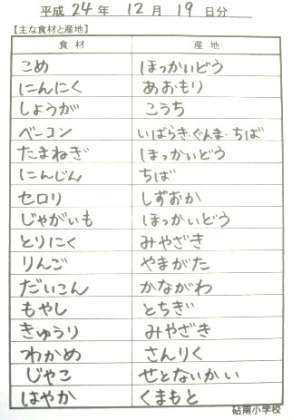 平成 24 年 12 月 19 日分
【主な食材と産地】
食材 産地
こめ ほっかいどう
にんにく あおもり
しょうが こうち
ベーコン いばらき・ぐんま・ちば
たまねぎ ほっかいどう
にんじん ちば
セロリ しずおか
じゃがいも ほっかいどう
とりにく みやざき
りんご やまがた
だいこん かながわ
もやし とちぎ
きゅうり みやざき
わかめ さんりく
じゃこ せとないかい
はやか くまもと
砧南小学校